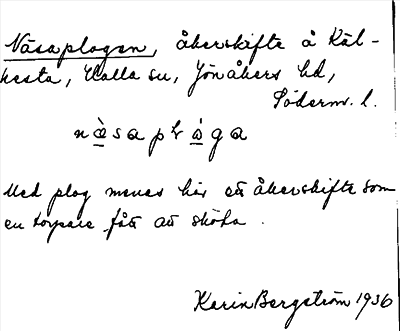 Näsaplogen, åkerskifte å Käl-
kesta, Halla sn, Jönåkers hd,
Söderm. l.
næ̀saplòga
Med plog menas här ett åkerskifte som
en torpare fått att sköta.
Karin Bergström 1936